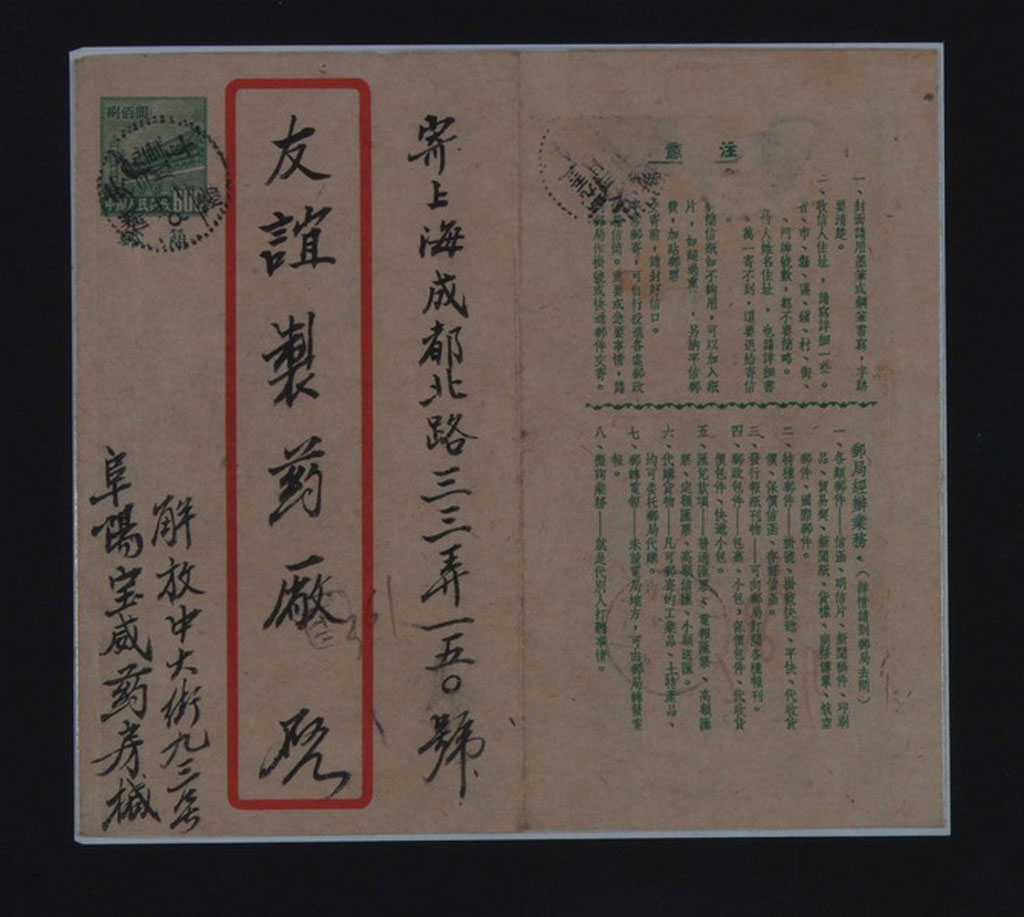 寄上海成都北路三三弄一五〇號
友誼製药廠 啓
解放中大街九三号
阜陽宝威药房椷
捌佰圓
800
注意
一、封面請用墨筆或鋼筆書寫，字跡
要清楚。
二、收信人住址，請寫詳細一些。
省、市、縣、區、鎮、村、街、
、門牌號數，都不要簡略。
寄件人姓名住址，也請詳細書
。萬一寄不到，還要退給寄信
。
信紙如不夠用，可以加入紙
片，如超過重，另納平信郵
費，加貼郵票
寄前，請封好信口。
郵局經辦業務（詳情請到郵局去問）
一、各類郵件——信函、明信片、新聞稿件、印刷
品、貿易契、新聞紙、貨樣、商務傳單、航空
郵件、國際郵件。
二、特種郵件——掛號、掛號快遞、平快、代收貨
價、保價信函、存證信函。
三、發行報紙刊物——可向郵局訂閱各種報刊。
四、郵政包件——包裹、小包、保價包件、代收貨
價包件、快遞小包。
五、匯兌款項——普通匯票、電報匯票、高額匯
票、定額匯票、高額信匯、小額送匯。
六、代購貨物——凡可郵寄的工業品、土特產品、
均可委托郵局代購。
七、郵轉電報——未設電局地方，可由郵局轉發電
報。
八、